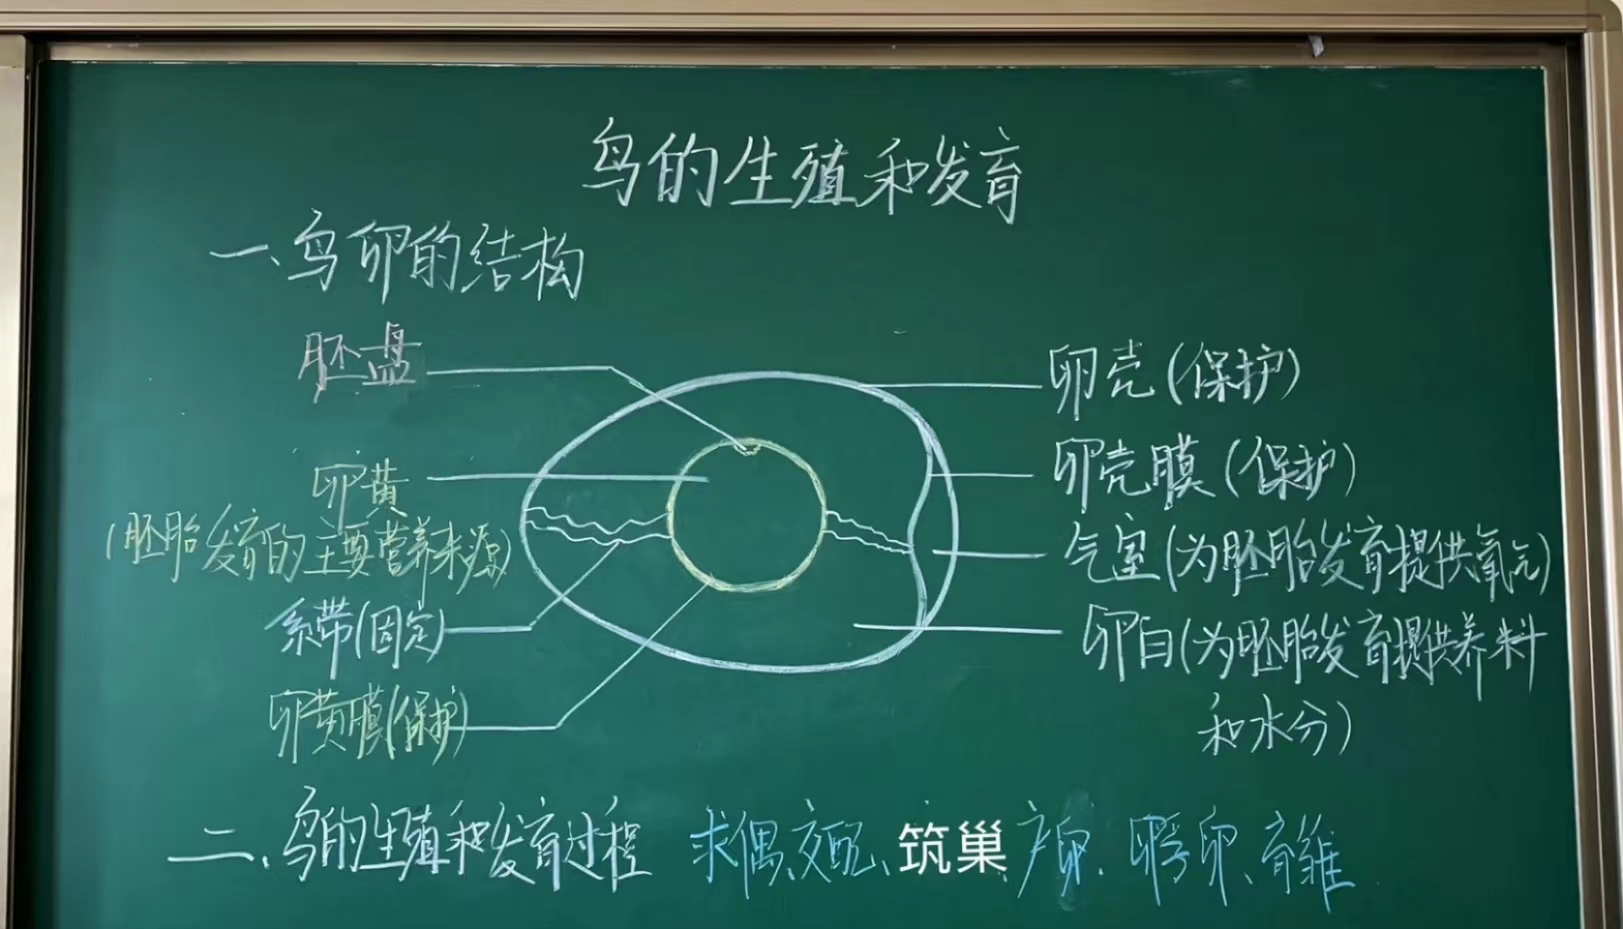 鸟的生殖和发育
一、鸟卵的结构
胚盘
卵黄
(胚胎发育的主要营养来源)
系带(固定)
卵黄膜(保护)
卵壳(保护)
卵壳膜(保护)
气室(为胚胎发育提供氧气)
卵白(为胚胎发育提供养料
和水分)
二、鸟的生殖和发育过程 求偶、交配、筑巢、产卵、孵卵、育雏